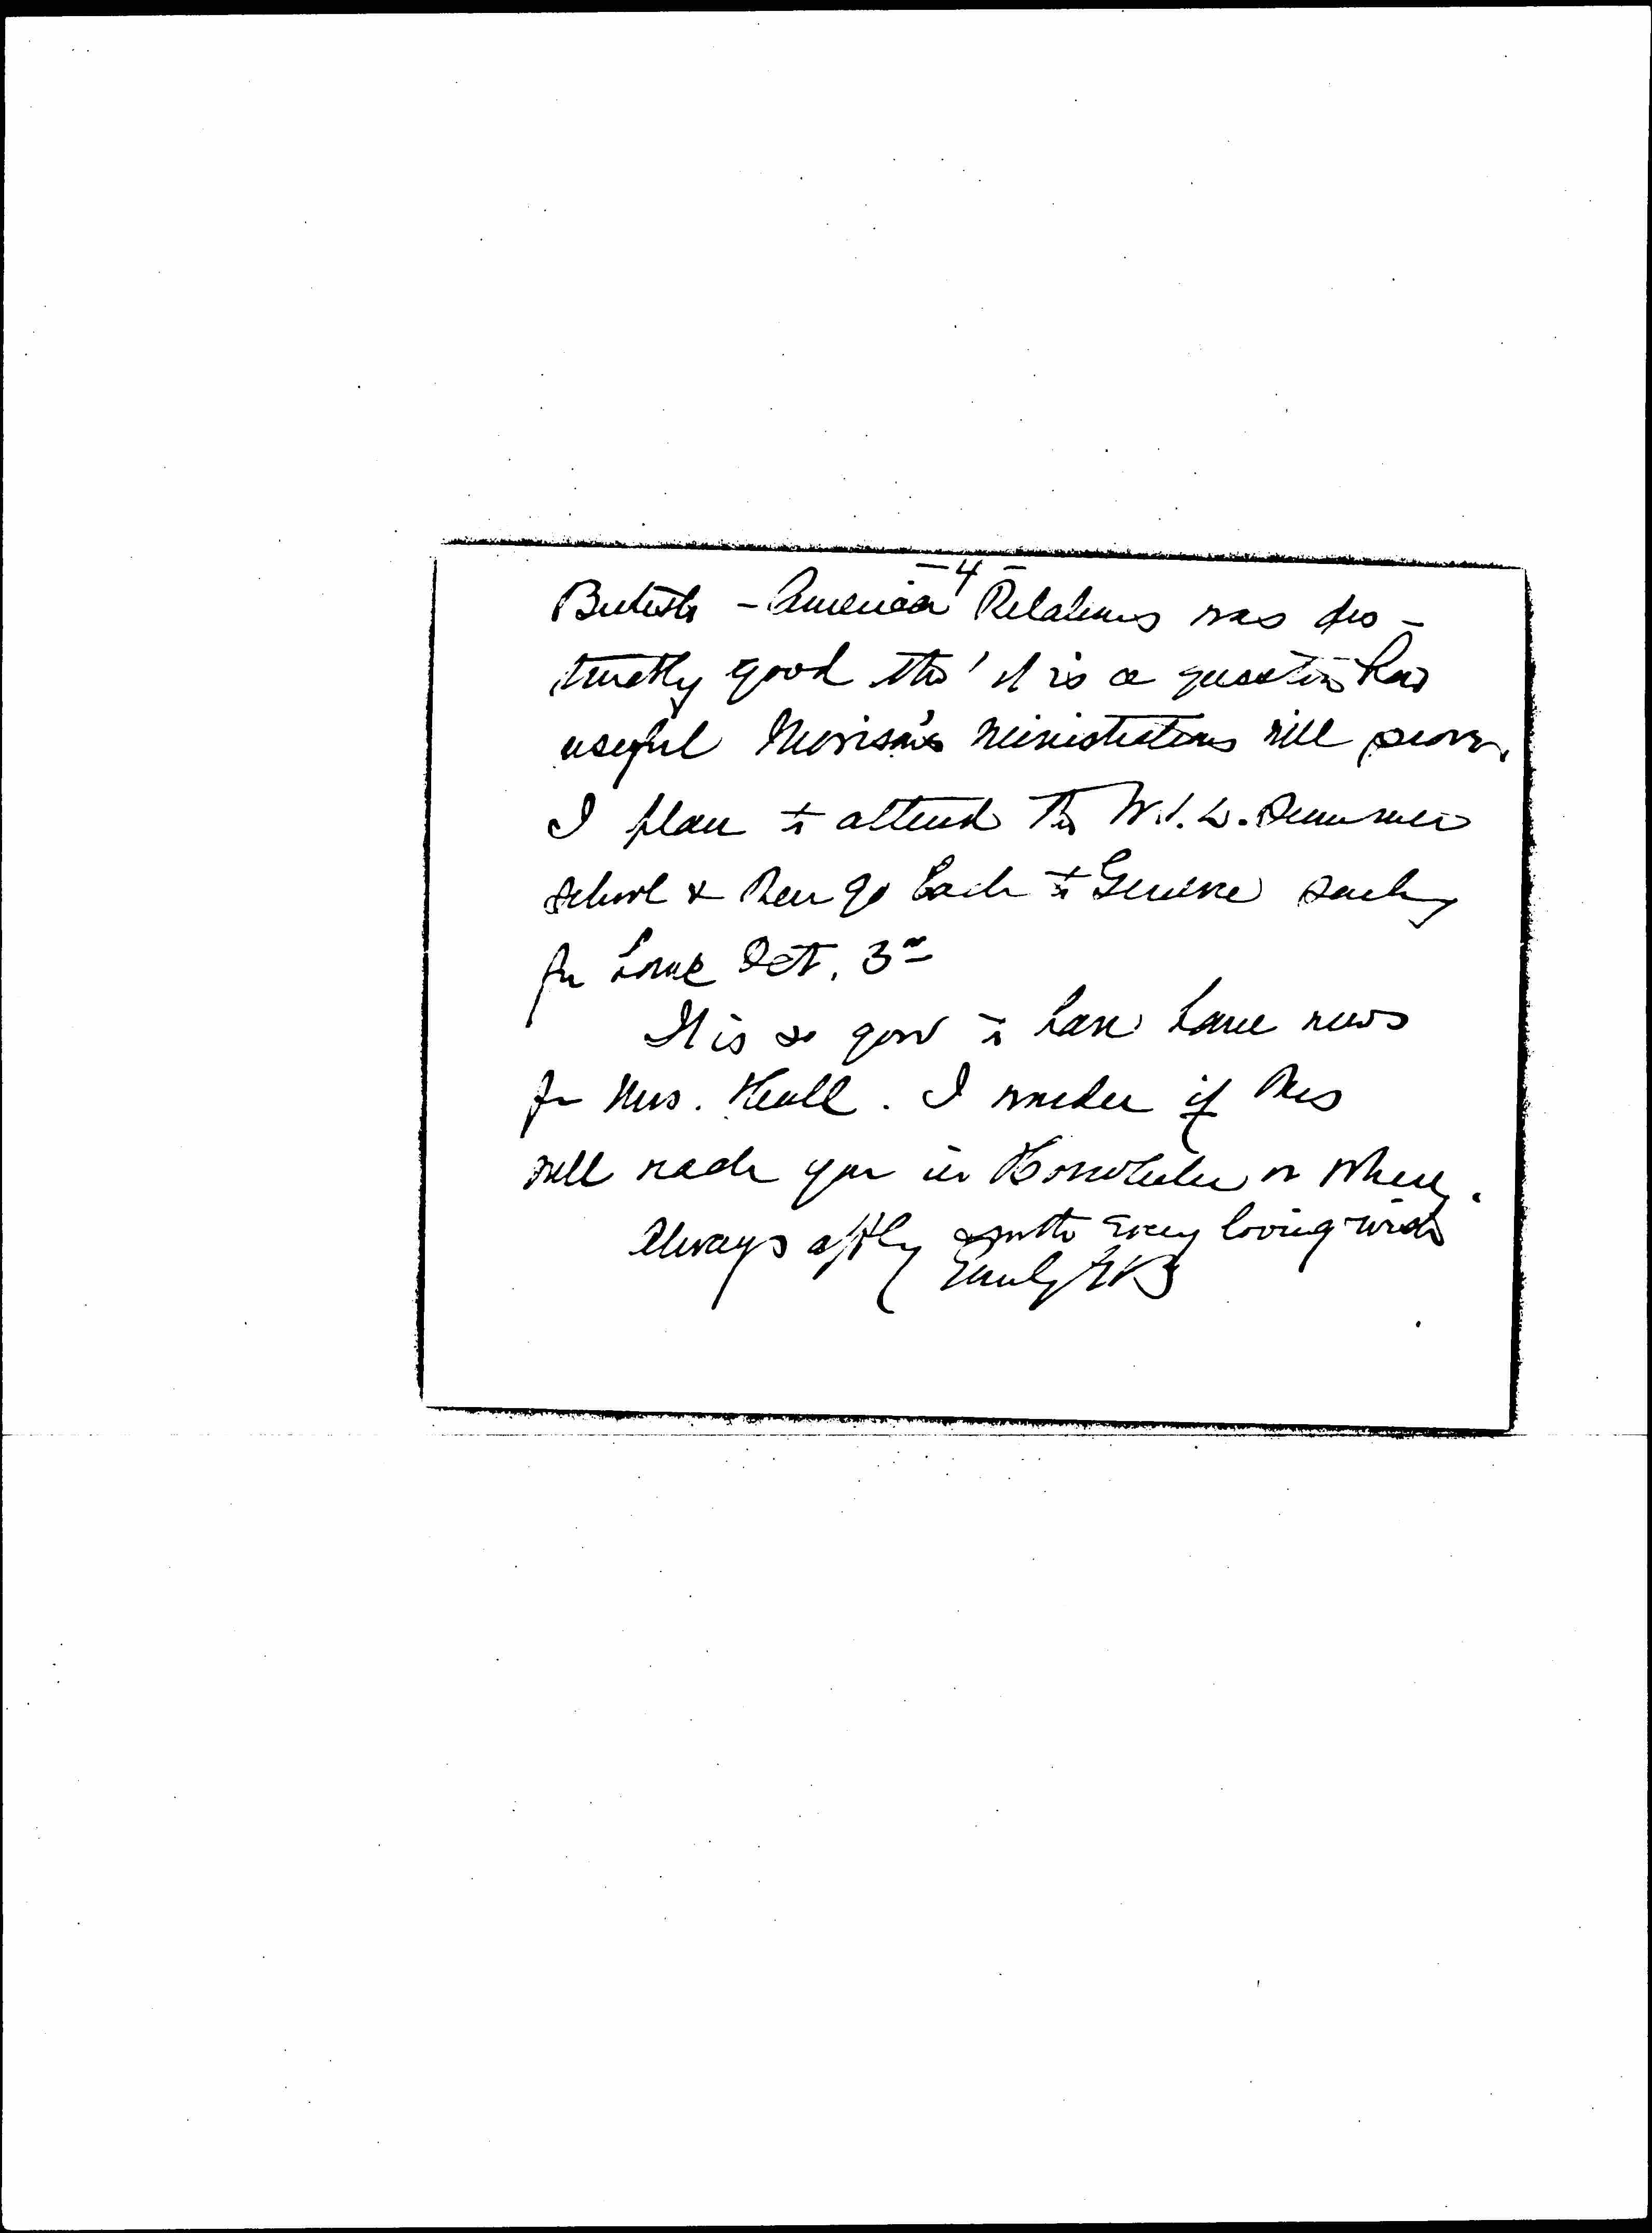 -4-
British - American Relations was dis-
tinctly good tho' it is a question how
useful Morison's ministrations will prove.
I plan to attend the W.I.L. Summer
School & then go back to Geneva sailing
for home Oct. 3rd
It is so good to have home news
fr Mrs. I wonder if this
will reach you in Honolulu or where.
Always affly & with every loving wish
Emily G B